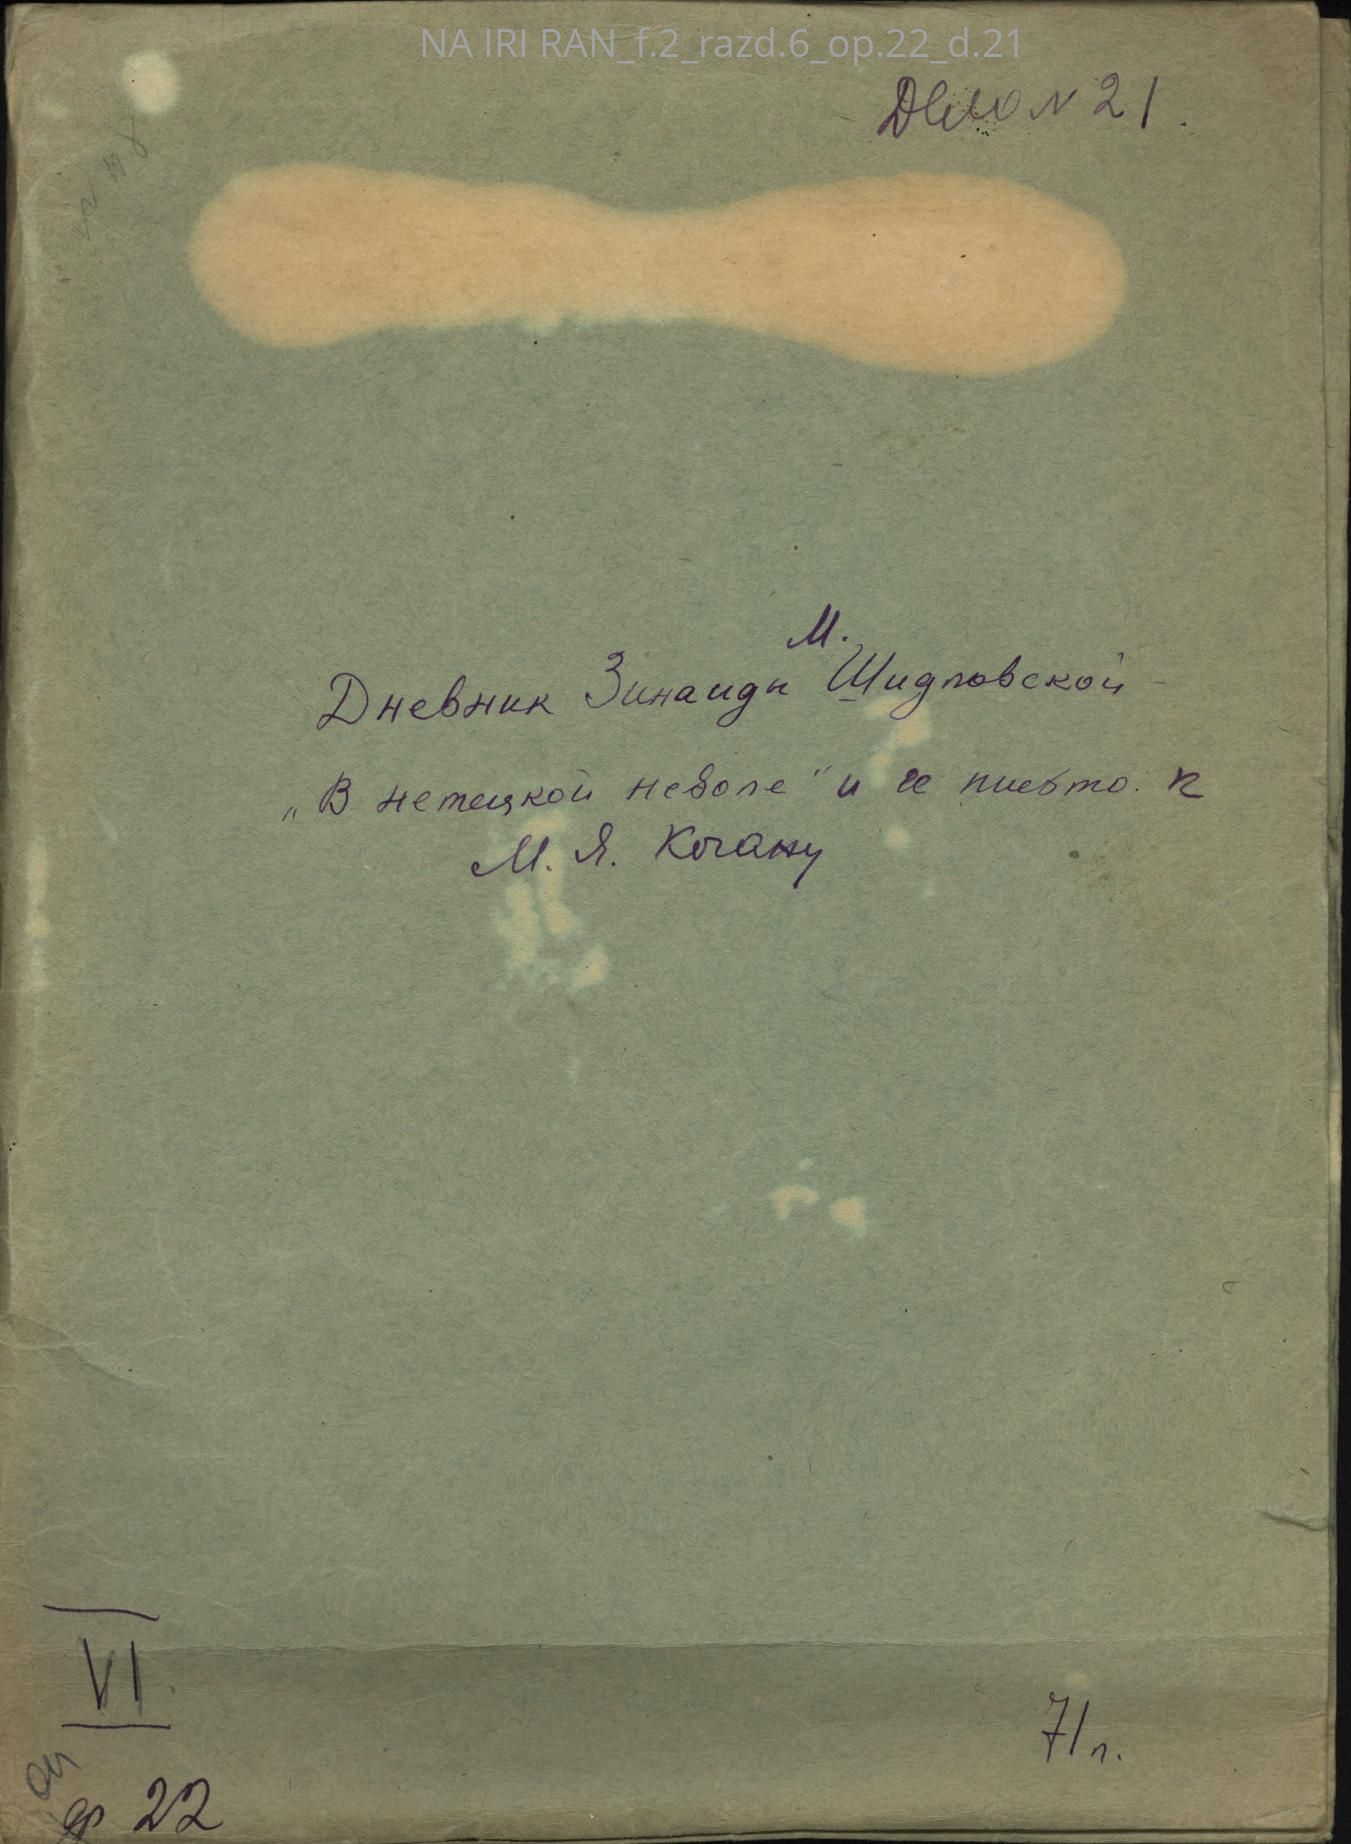 NA IRI RAN_f.2_razd.6_op.22_d.21
Дело N 21.
М.
Дневник Зинаиды Шидловской -
„В немецкой неволе" и ее письмо к
М. Я. Когану
VI
22
71 л.